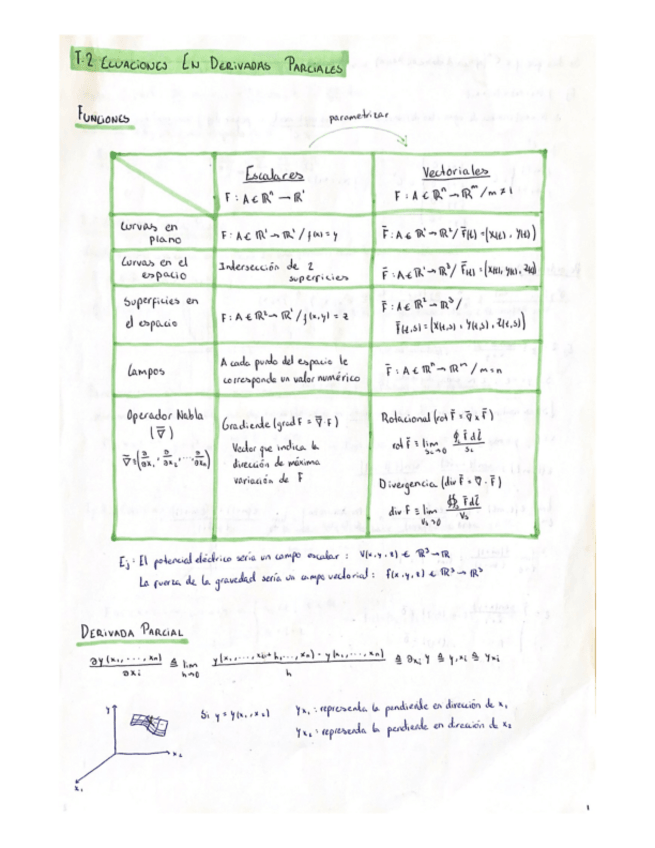 T.2 ECUACIONES EN DERIVADAS PARCIALES
FUNCIONES
parametrizar
Escalares
F : A ∈ ℝⁿ → ℝ¹
Vectoriales
F : A ∈ ℝⁿ → ℝᵐ / m ≠ 1
Curvas en plano
F : A ∈ ℝ¹ → ℝ¹ / f(x) = y
F̄ : A ∈ ℝ¹ → ℝ² / F̄(t) = (x(t), y(t))
Curvas en el espacio
Intersección de 2 superficies
F̄ : A ∈ ℝ¹ → ℝ³ / F̄(t) = (x(t), y(t), z(t))
Superficies en el espacio
F : A ∈ ℝ² → ℝ¹ / f(x,y) = z
F̄ : A ∈ ℝ² → ℝ³ /
F̄(t,s) = (x(t,s), y(t,s), z(t,s))
Campos
A cada punto del espacio le
corresponde un valor numérico
F̄ : A ∈ ℝⁿ → ℝᵐ / m = n
Operador Nabla
(∇̄)
∇̄ = (∂/∂x₁, ∂/∂x₂, ..., ∂/∂xₙ)
Gradiente (grad F = ∇̄ · F)
Vector que indica la
dirección de máxima
variación de F
Rotacional (rot F̄ = ∇̄ x F̄)
rot F̄ = lim
Divergencia (div F̄ = ∇ · F̄)
div F = lim
Ej : El potencial eléctrico sería un campo escalar : V(x,y,z) ∈ ℝ³ → ℝ
La fuerza de la gravedad sería un campo vectorial : f(x,y,z) ∈ ℝ³ → ℝ³
DERIVADA PARCIAL
∂y(x₁, ..., xₙ)/∂xᵢ ≜ lim h→0 (y(x₁, ..., xᵢ+h, ..., xₙ) - y(x₁, ..., xₙ))/h ≜ ∂xᵢ y ≜ y,xᵢ ≜ yxᵢ
y
x₂
x₁
Si y = y(x₁, x₂)
yx₁ : representa la pendiente en dirección de x₁
yx₂ : representa la pendiente en dirección de x₂
1